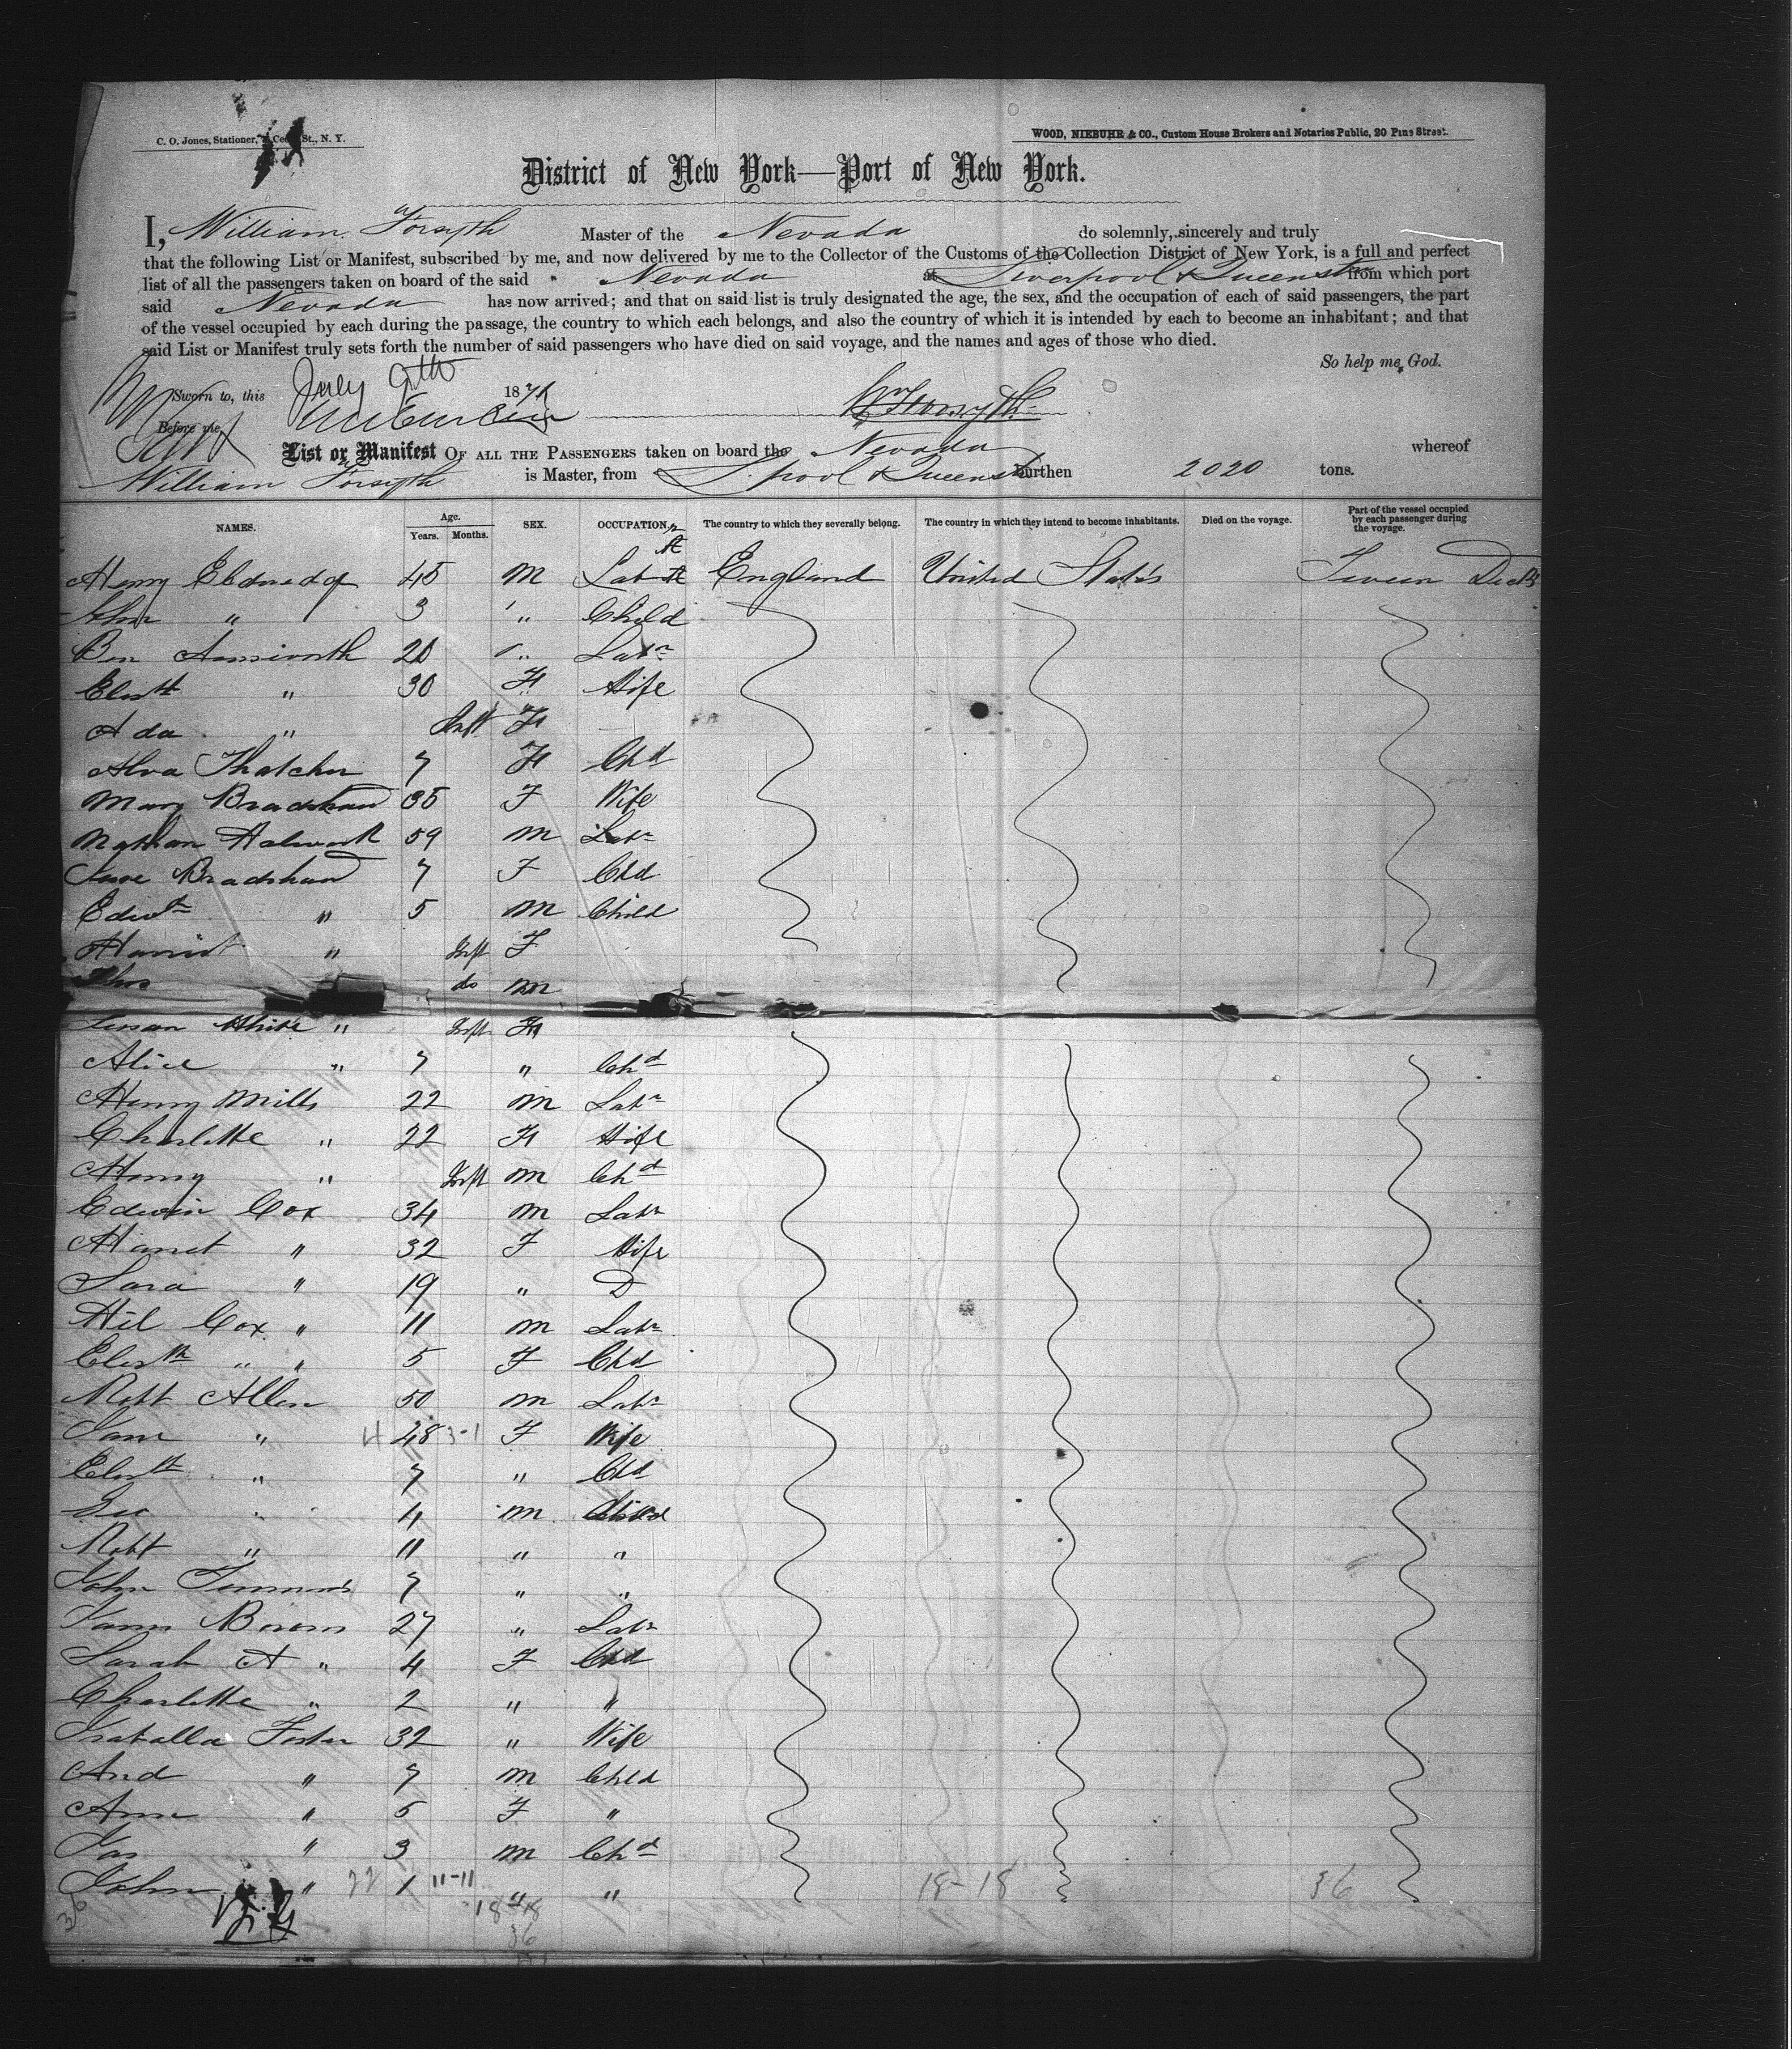 C. O. Jones, Stationer, St., N. Y.
WOOD, NIEBUHR & CO., Custom House Brokers and Notaries Public, 20 Pine Street.
District of New York—Port of New York.
I, William Forsyth Master of the Nevada do solemnly, sincerely and truly
that the following List or Manifest, subscribed by me, and now delivered by me to the Collector of the Customs of the Collection District of New York, is a full and perfect
list of all the passengers taken on board of the said Nevada at Liverpool & Queenst from which port
said Nevada has now arrived; and that on said list is truly designated the age, the sex, and the occupation of each of said passengers, the part
of the vessel occupied by each during the passage, the country to which each belongs, and also the country of which it is intended by each to become an inhabitant; and that
said List or Manifest truly sets forth the number of said passengers who have died on said voyage, and the names and ages of those who died.
So help me God.
Sworn to, this July 9th 1871 Wm Forsyth
Before me,
List or Manifest OF ALL THE PASSENGERS taken on board the Nevada whereof
William Forsyth is Master, from L.pool & Queenst burthen 2020 tons.
NAMES. Age. Years. Months. SEX. OCCUPATION. The country to which they severally belong. The country in which they intend to become inhabitants. Died on the voyage. Part of the vessel occupied by each passenger during the voyage.
Henry 45 M Lab England United States Tween Decks
John " 3 " Child
Ben 20 " Labr
Elizth " 30 F Wife
Ada " Inft F
Thatcher 7 F Chd
Mary Bradshaw 35 F Wife
Nathan 59 M Labr
Bradshaw 7 F Chd
Edwn " 5 M Child
Harriet " Inft F
Thos do M
Susan White " Inft F
Alice " 7 " Chd
Henry Mills 22 M Labr
Charlotte " 22 F Wife
Henry " Inft M Chd
Edwin Cox 34 M Labr
Harriet " 32 F Wife
Sara " 19 " D
Cox " 11 M Labr
Elizth " " 5 F Chd
Robt Allen 50 M Labr
Jane " 4 48 3-1 F Wife
Elizth " 7 " Chd
Geo " 4 M Child
Robt " 11 " "
John Timmins 7 " "
James 27 " Labr
Sarah A " 4 F Chd
Charlotte " 2 " "
Isabella Foster 32 " Wife
And " 7 M Child
Ann " 5 F "
Jas " 3 M Chd
John " 22 1 11-11 " " 18-18 36
36 18-18
36